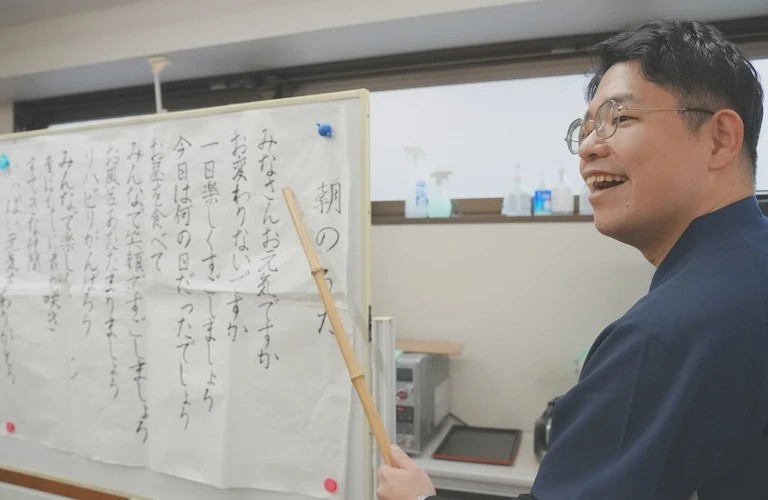 朝のうた
みなさんお元気ですか
お変わりないですか
一日楽しくすごしましょう
今日は何の日だったでしょう
お昼を食べて
みんなで笑顔ですごしましょう
お風呂であたたまりましょう
リハビリがんばろう
みんなで楽し